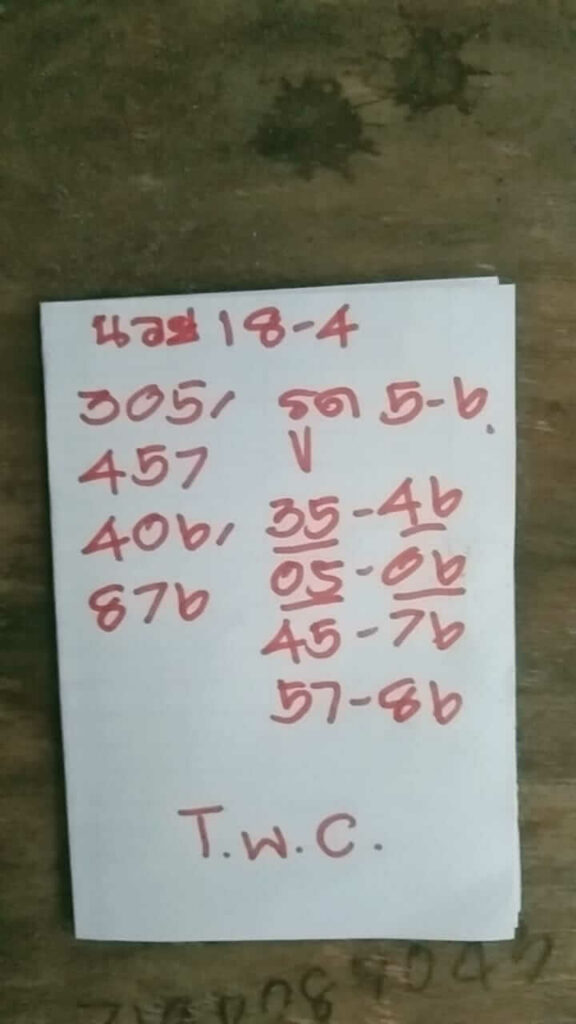 นอย 18-4
305, รูด 5-6
457 V
406, 35-46
876 05-06
45-76
57-86
T.W.C.